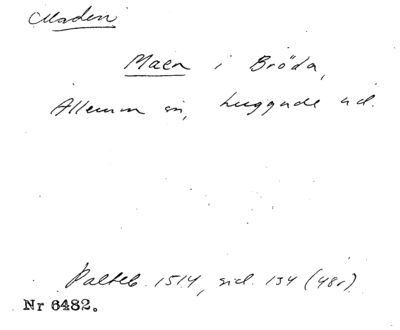 Maden
Maen i Bröda,
Allerum sn, Luggude hd.
Palteb. 1514, sid. 134 (48r)
Nr 6482.